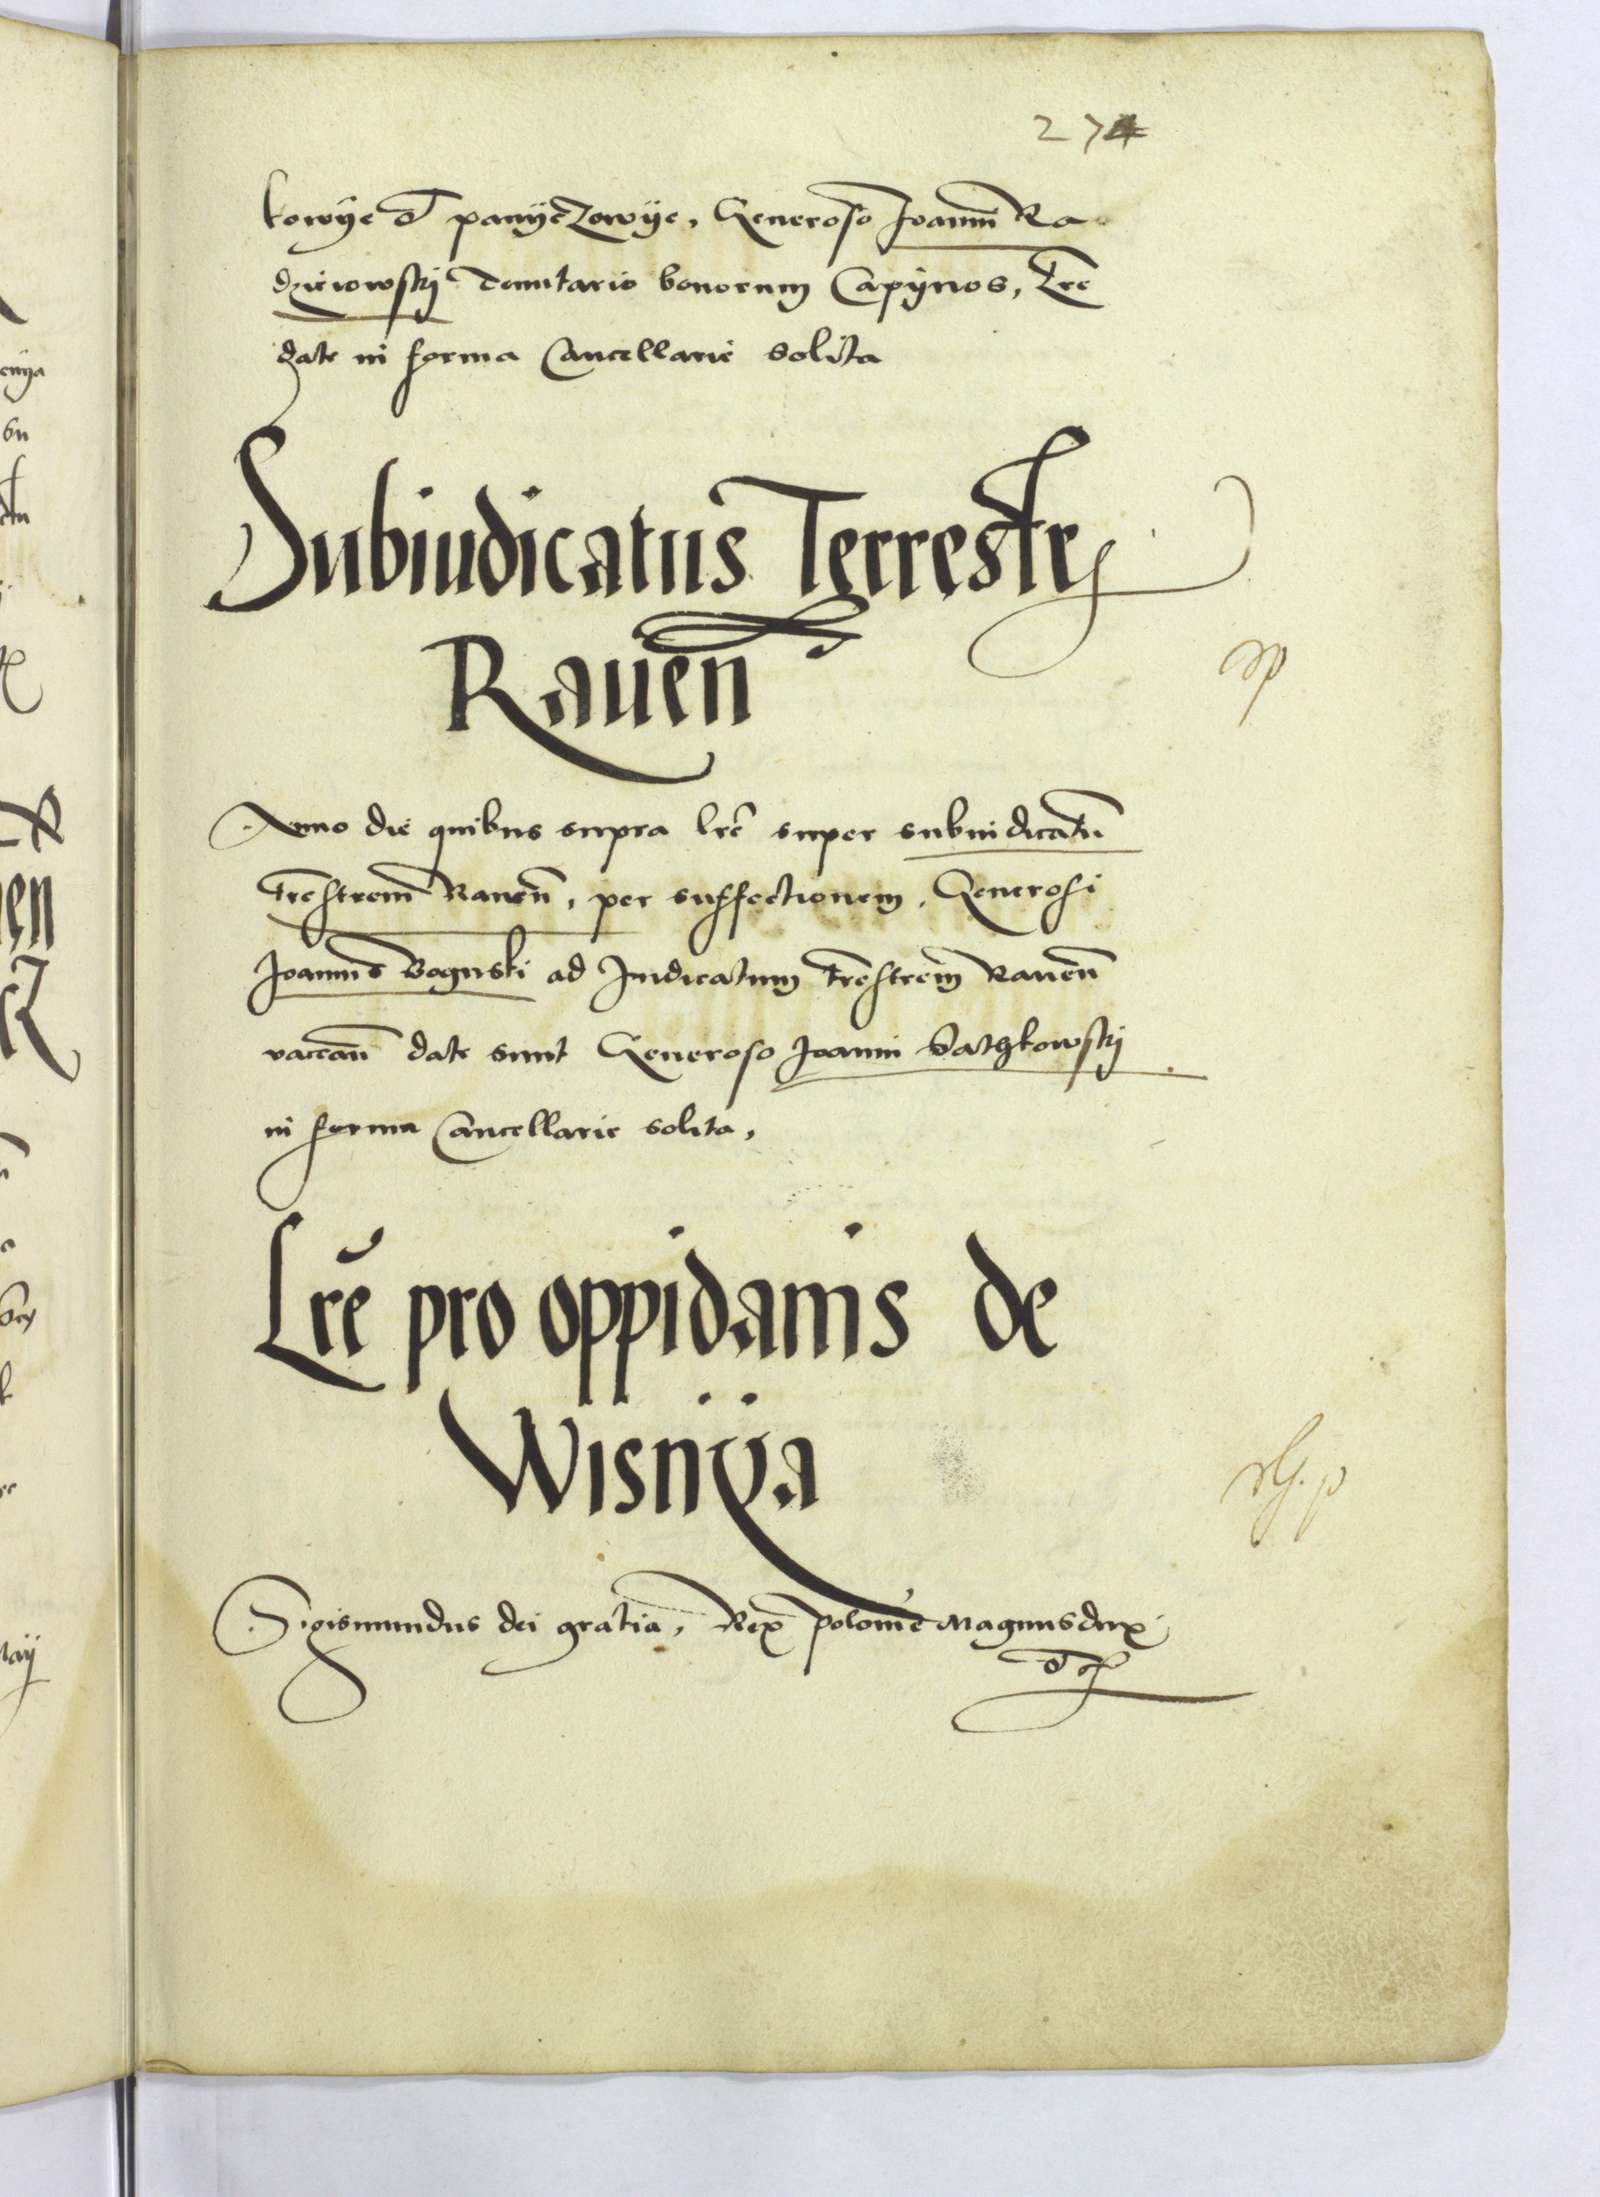 274
kowÿe et panÿeZowÿe, Generoso Joanni Ra
dzieiowskij Tenutario bonorum Capÿnos, Lre
date in forma Cancellarie solita
Subiudicatus Terrestr
Rauen
Anno die quibus supra lre super subiudicatu
Trestrem Rauen, per suffectionem, Generosi
Joannis Boguski ad Judicatum Trestrem Rauen
vaccan date sunt Generoso Joanni
in forma Cancellarie solita,
Lre pro oppidanis de
Wisnÿa
Sigismundus dei gratia, Rex Polonie Magnus dux